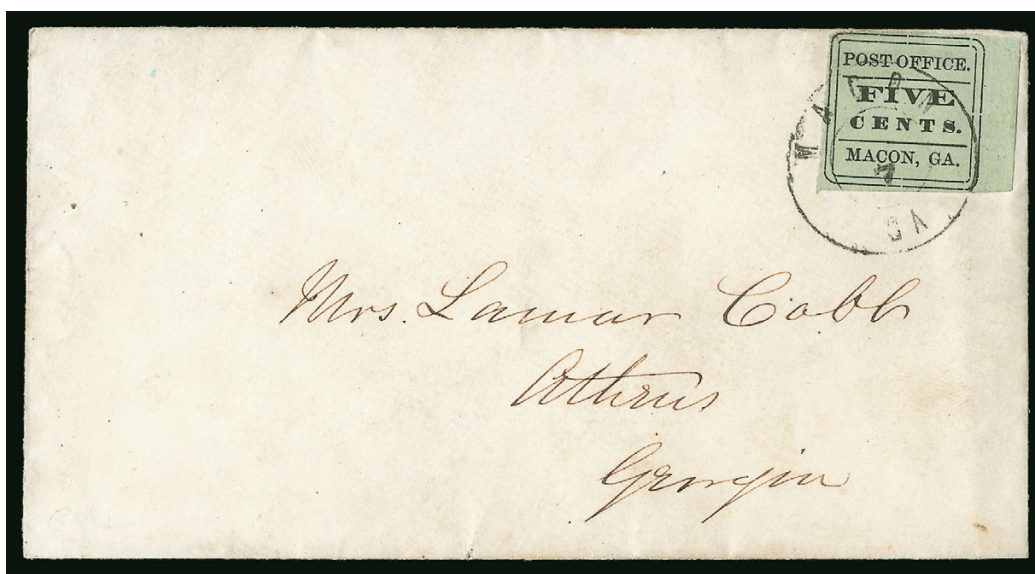 POST OFFICE.
FIVE
CENTS.
MACON, GA.
MACON
GA
Mrs. Lamar Cobb
Athens
Georgia